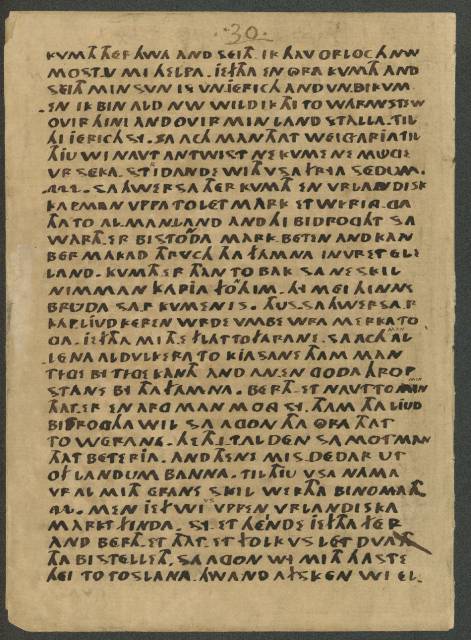 30.
KVMTH THER HWA AND SEITH. IK HAV ORLOCH NW
MOST.V MI HELPA. JEFTHA EN OTHRA KVMTH AND
SEITH MIN SVN IS VN.JERICH AND VN.BIKVM.
.EN IK BIN ALD NW WILD IK THI TO WARANSTEW
OVIR HINI AND OVIR MIN LAND STALLA. TIL
HI JERICH SY. SA ACH MAN THAT WEIGARJA TIL
THJU WI NAVT AN TWIST NE KVME NE MÜGE
VR SEKA. STRIDANDE WITH VSA FRYA SEDUM.
.22. SAHWERSA THER KVMTH EN VRLANDISK
KAPMAN VPPA TOLET MARK ET WYRINGA
THA TO ALMANLAND AND HI BIDROGHT SA
WARTH.ER BISTONDA MARK.BETEN AND KAN
BER MAKAD THRVCH THA FAMNA INVR ET ELE
LAND. KVMTH ER THAN TO BAK SA NE SKIL
NIMMAN KAPJA TO HIM. HY MEI HINNE
BRUDA SAR KVMEN IS. THVS.SAHWERSA.R
KAPLJUD KEREN WRDE VMBE WRA MERKA TO
GA. JEFTHA MITH.E FLAT TO FARANE. SA ACH MAN AL
LENA ALDVLKERA TO KJASANE THAM MAN
TYGE BI TYGE KANTH AND AN EN GODA HROP
STANE BI THA FAMNA. BERTH.ET NAVT TO MIN
THAT.ER EN ARG MAN MONG SY. THAM THA LJUD
BITROGHA WIL. SA AGON THA OTHRA THAT
TO WERANE. HETH.I.T AL DEN SA MOT MAN
THAT BETERJA. AND THENE MIS.DEDAR UT
OF LANDUM BANNA. TIL THJU VSA NAMA
VRAL MITH ERANE SKIL WERTHA BINOMATH.
.22. MEN JEF WI VS VPPEN VRLANDISKA
MARKT FINDA. SY.ET HEINDE JEFTHA FER
AND BERTH.ET THAT.ET FOLK VS LET DVATH
THA BISTELLETH. SA AGON WY MITH HASTE
HEI TO TO SLANA. HWAND AFSKEN WI EL.